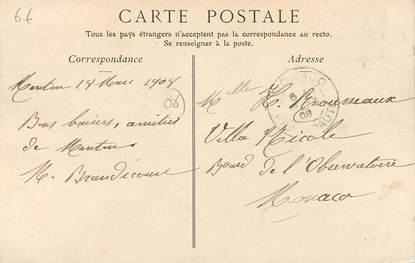 6€
CARTE POSTALE
Tous les pays étrangers n'acceptent pas la correspondance au recto.
Se renseigner à la poste.
Correspondance
Adresse
Menton 18 Mars 1908
Bons baisers, amitiés
de Menton
M. Brandicourt
Melle H. Trousseaux
Villa Nicole
Board de l'Observatoire
Monaco
MONACO
08